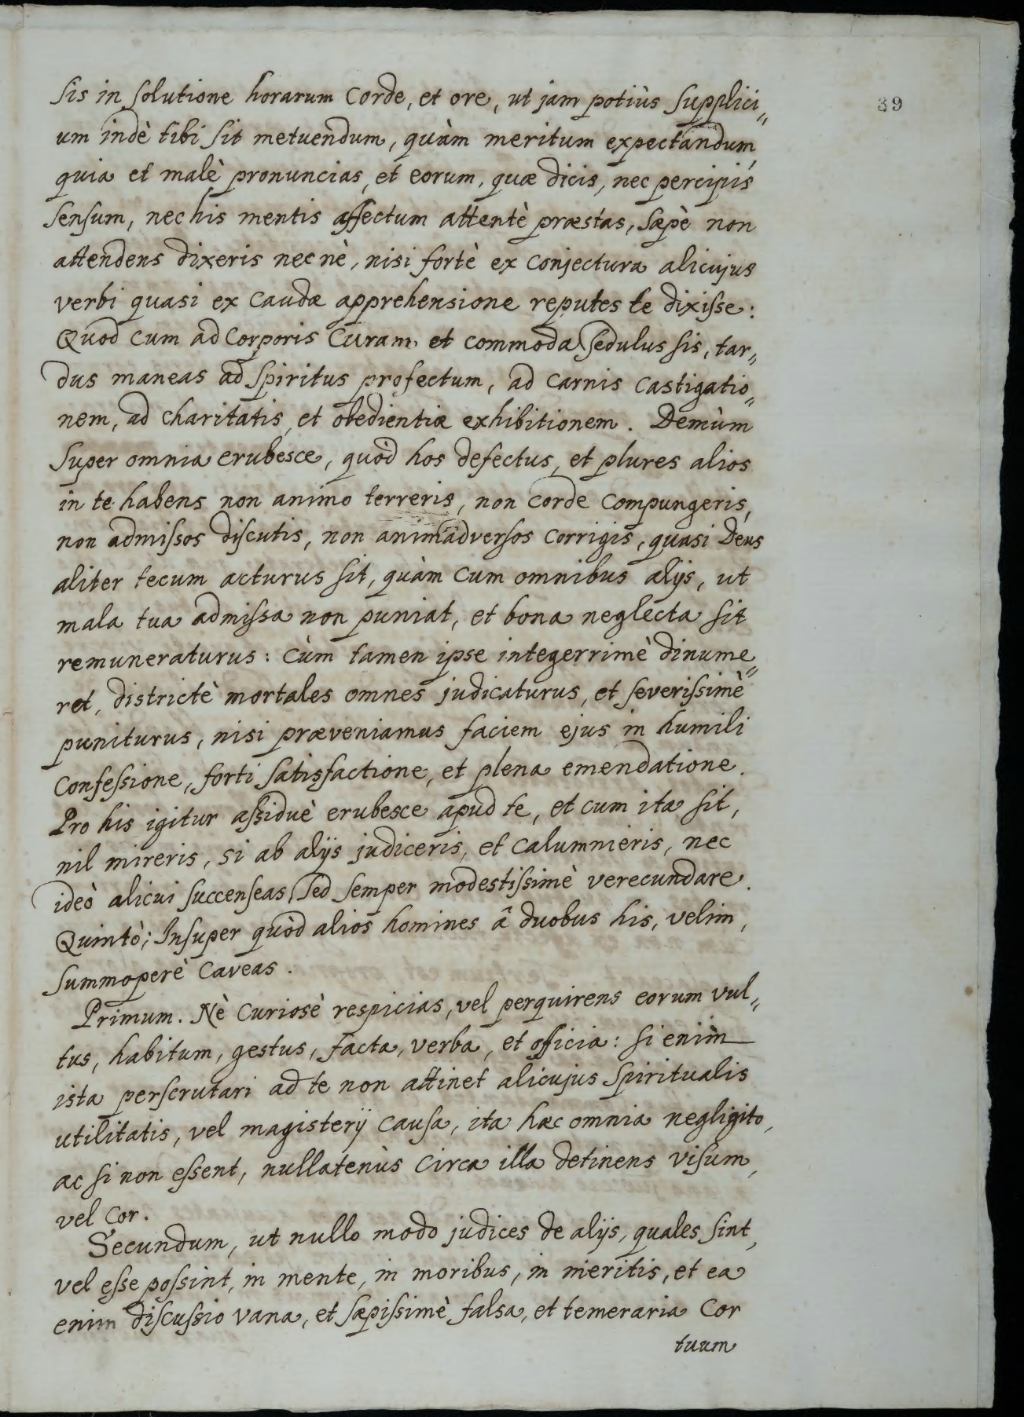 39
sis in solutione horarum corde, et ore, ut jam potiùs supplici„
um indè tibi sit metuendum, quàm meritum expectandum,
quia et malè pronuncias, et eorum, quæ dicis, nec percipis
sensum, nec his mentis affectum attentè præstas, sæpè non
attendens dixeris nec nè, nisi fortè ex conjectura alicujus
verbi quasi ex caudæ apprehensione reputes te dixisse:
Quod cum ad Corporis Curam, et commoda sedulus sis, tar„
dus maneas ad spiritus profectum, ad carnis castigatio„
nem, ad charitatis, et obedientiæ exhibitionem. Demùm
super omnia erubesce, quòd hos defectus, et plures alios
in te habens non animo terreris, non corde compungeris,
non admissos discutis, non animadversos corrigis, quasi Deus
aliter tecum acturus sit, quàm cum omnibus alijs, ut
mala tua admissa non puniat, et bona neglecta sit
remuneraturus: cùm tamen ipse integerrimè dinume„
ret, districtè mortales omnes judicaturus, et severissimè
puniturus, nisi præveniamus faciem ejus in humili
Confessione, forti satisfactione, et plena emendatione.
Pro his igitur assiduè erubesce apud te, et cum ita sit,
nil mireris, si ab alijs judiceris, et calumnieris, nec
ideò alicui succenseas, sed semper modestissimè verecundare.
Quintò; Insuper quòd alios homines â duobus his, velim,
summoperè caveas.
Primum. Nè curiosè respicias, vel perquirens eorum vul„
tus, habitum, gestus, facta, verba, et officia: si enim
ista perscrutari ad te non attinet alicujus spiritualis
utilitatis, vel magisterij causa, ita hæc omnia negligito,
ac si non essent, nullatenùs circa illa detinens visum,
vel cor.
Secundum, ut nullo modo judices de alijs, quales sint,
vel esse possint, in mente, in moribus, in meritis, et ea
enim discussio vana, et sæpissimè falsa, et temeraria cor
tuum